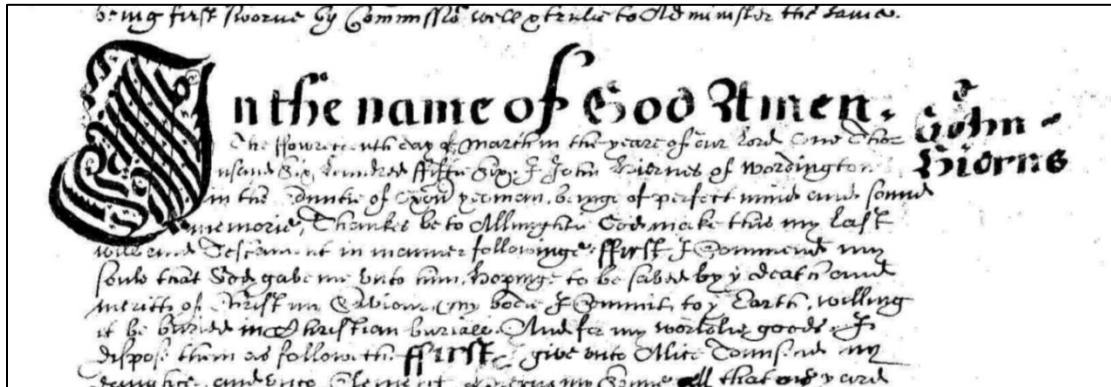 being first sworne by Commissiō well & trulie to Administer the same.
In the name of God Amen.
The ffowreteenth day of March in the yeare of our Lord One Thow
usand Six hundred ffiftie Six, I John Hiernes of Wordington
in the Countie of Oxon yeoman, beinge of perfect minde and sound
memorie, Thankes be to Allmightie God make this my last
will and Testament in manner followinge, ffirst I Commend my
soule that God gave me unto him, hoping to be saved by yͤ death and
meritts of Christ my Saviour, my bodie I Commit to yͤ Earth, willing
it be buried in Christian buriall. And for my worldlie goods I
dispose them as followeth. ffirst I give unto Alice Townsend my
daughter, and unto Clement my Sonne all that yard
John
Hierns